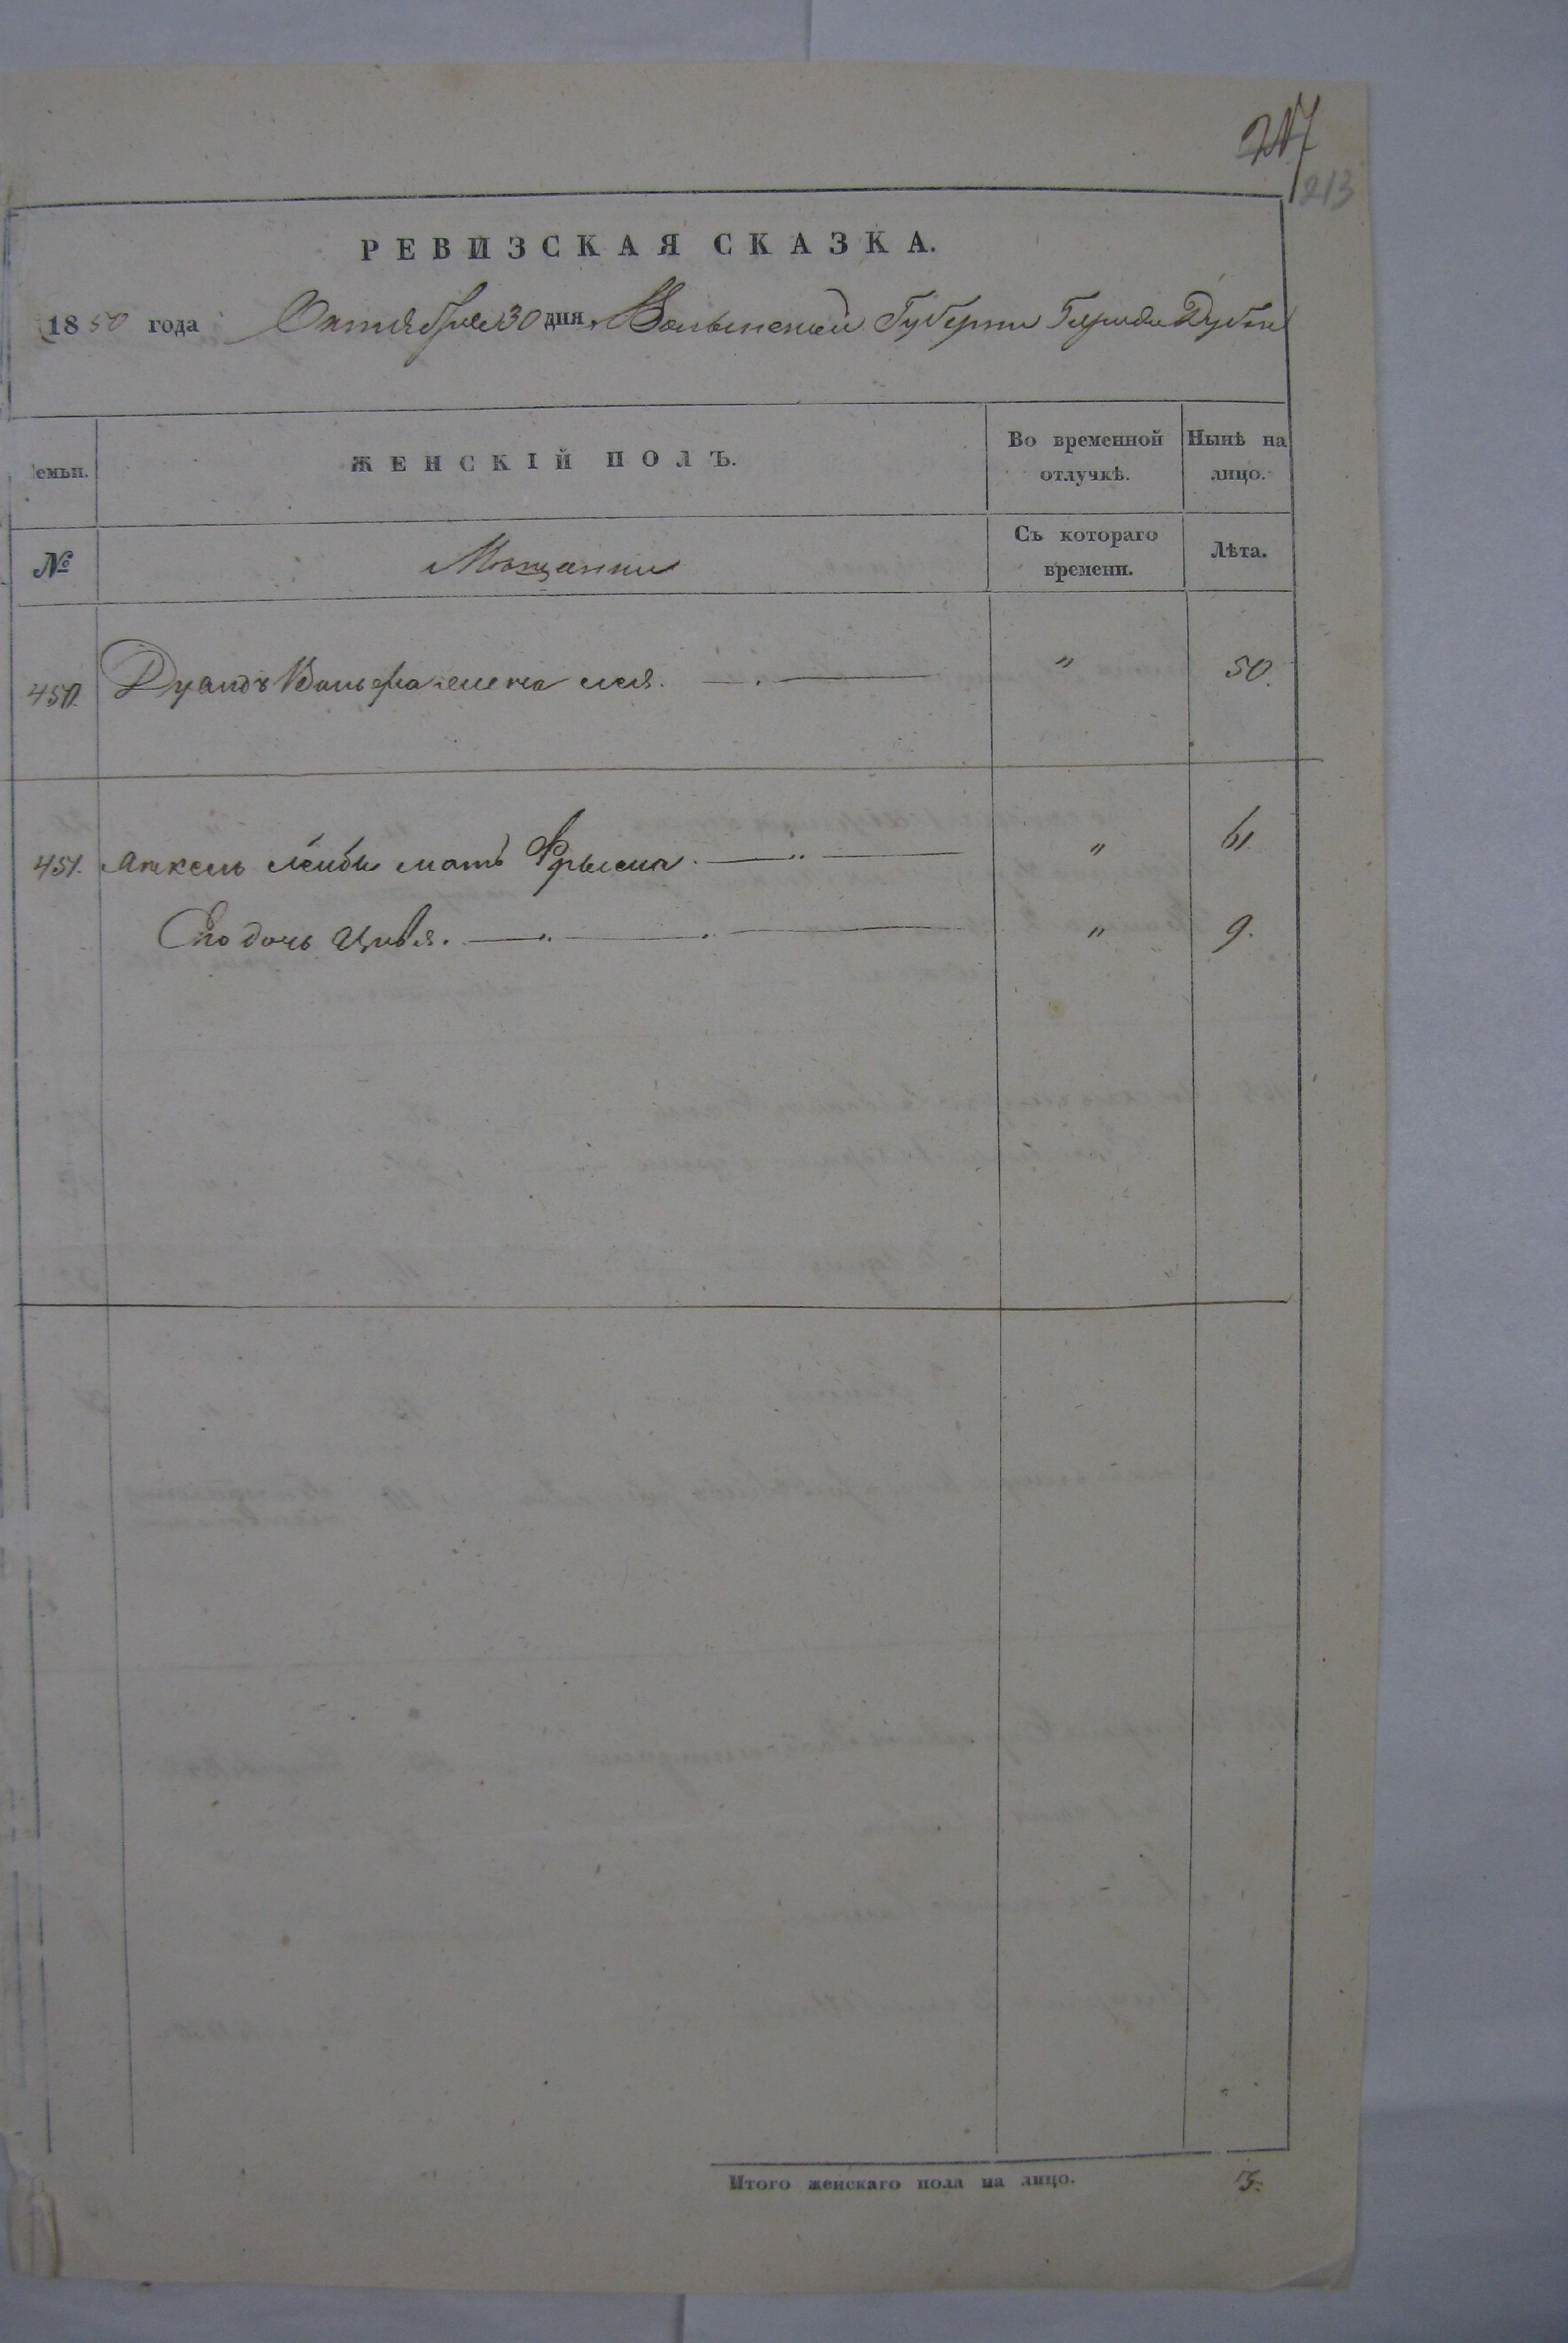 217
213
РЕВИЗСКАЯ СКАЗКА.
1850 года Октября 30 дня Волынской Губернии Города Дубна
емьи. ЖЕНСКІЙ ПОЛЪ. Во временной отлучкѣ. Нынѣ на лицо.
№ Мѣщанки Съ котораго времени. Лѣта.
450. Вольфа жена " 50.
451. Лейбы мать Фрыма. " 61.
Его дочь Цивья. " 9.
Итого женскаго пола на лицо. 3.